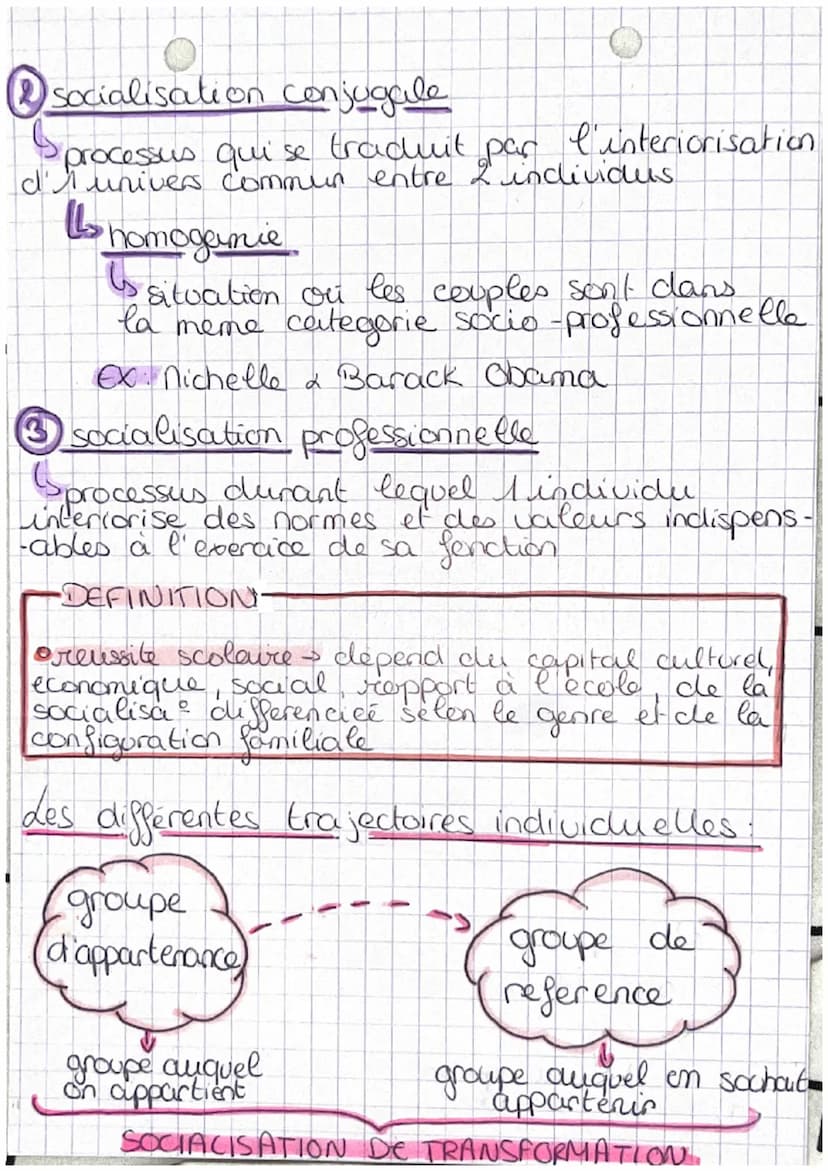 2 socialisation conjugale
↳ processus qui se traduit par l'interiorisation
d'1 univers commun entre 2 individus
↳ homogamie
↳ situation où les couples sont dans
la meme categorie socio-professionnelle
EX: Michelle & Barack Obama
3 socialisation professionnelle
↳ processus durant lequel 1 individu
interiorise des normes et des valeurs indispens-
-ables à l'exercice de sa fonction
DEFINITION
• reussite scolaire → depend du capital culturel,
economique, social, rapport à l'école, de la
socialisa° differenciée selon le genre et de la
configuration familiale
Les différentes trajectoires individuelles:
groupe
d'appartenance
groupe de
reference
groupe auquel
on appartient
groupe auquel on souhait
appartenir
SOCIALISATION DE TRANSFORMATION